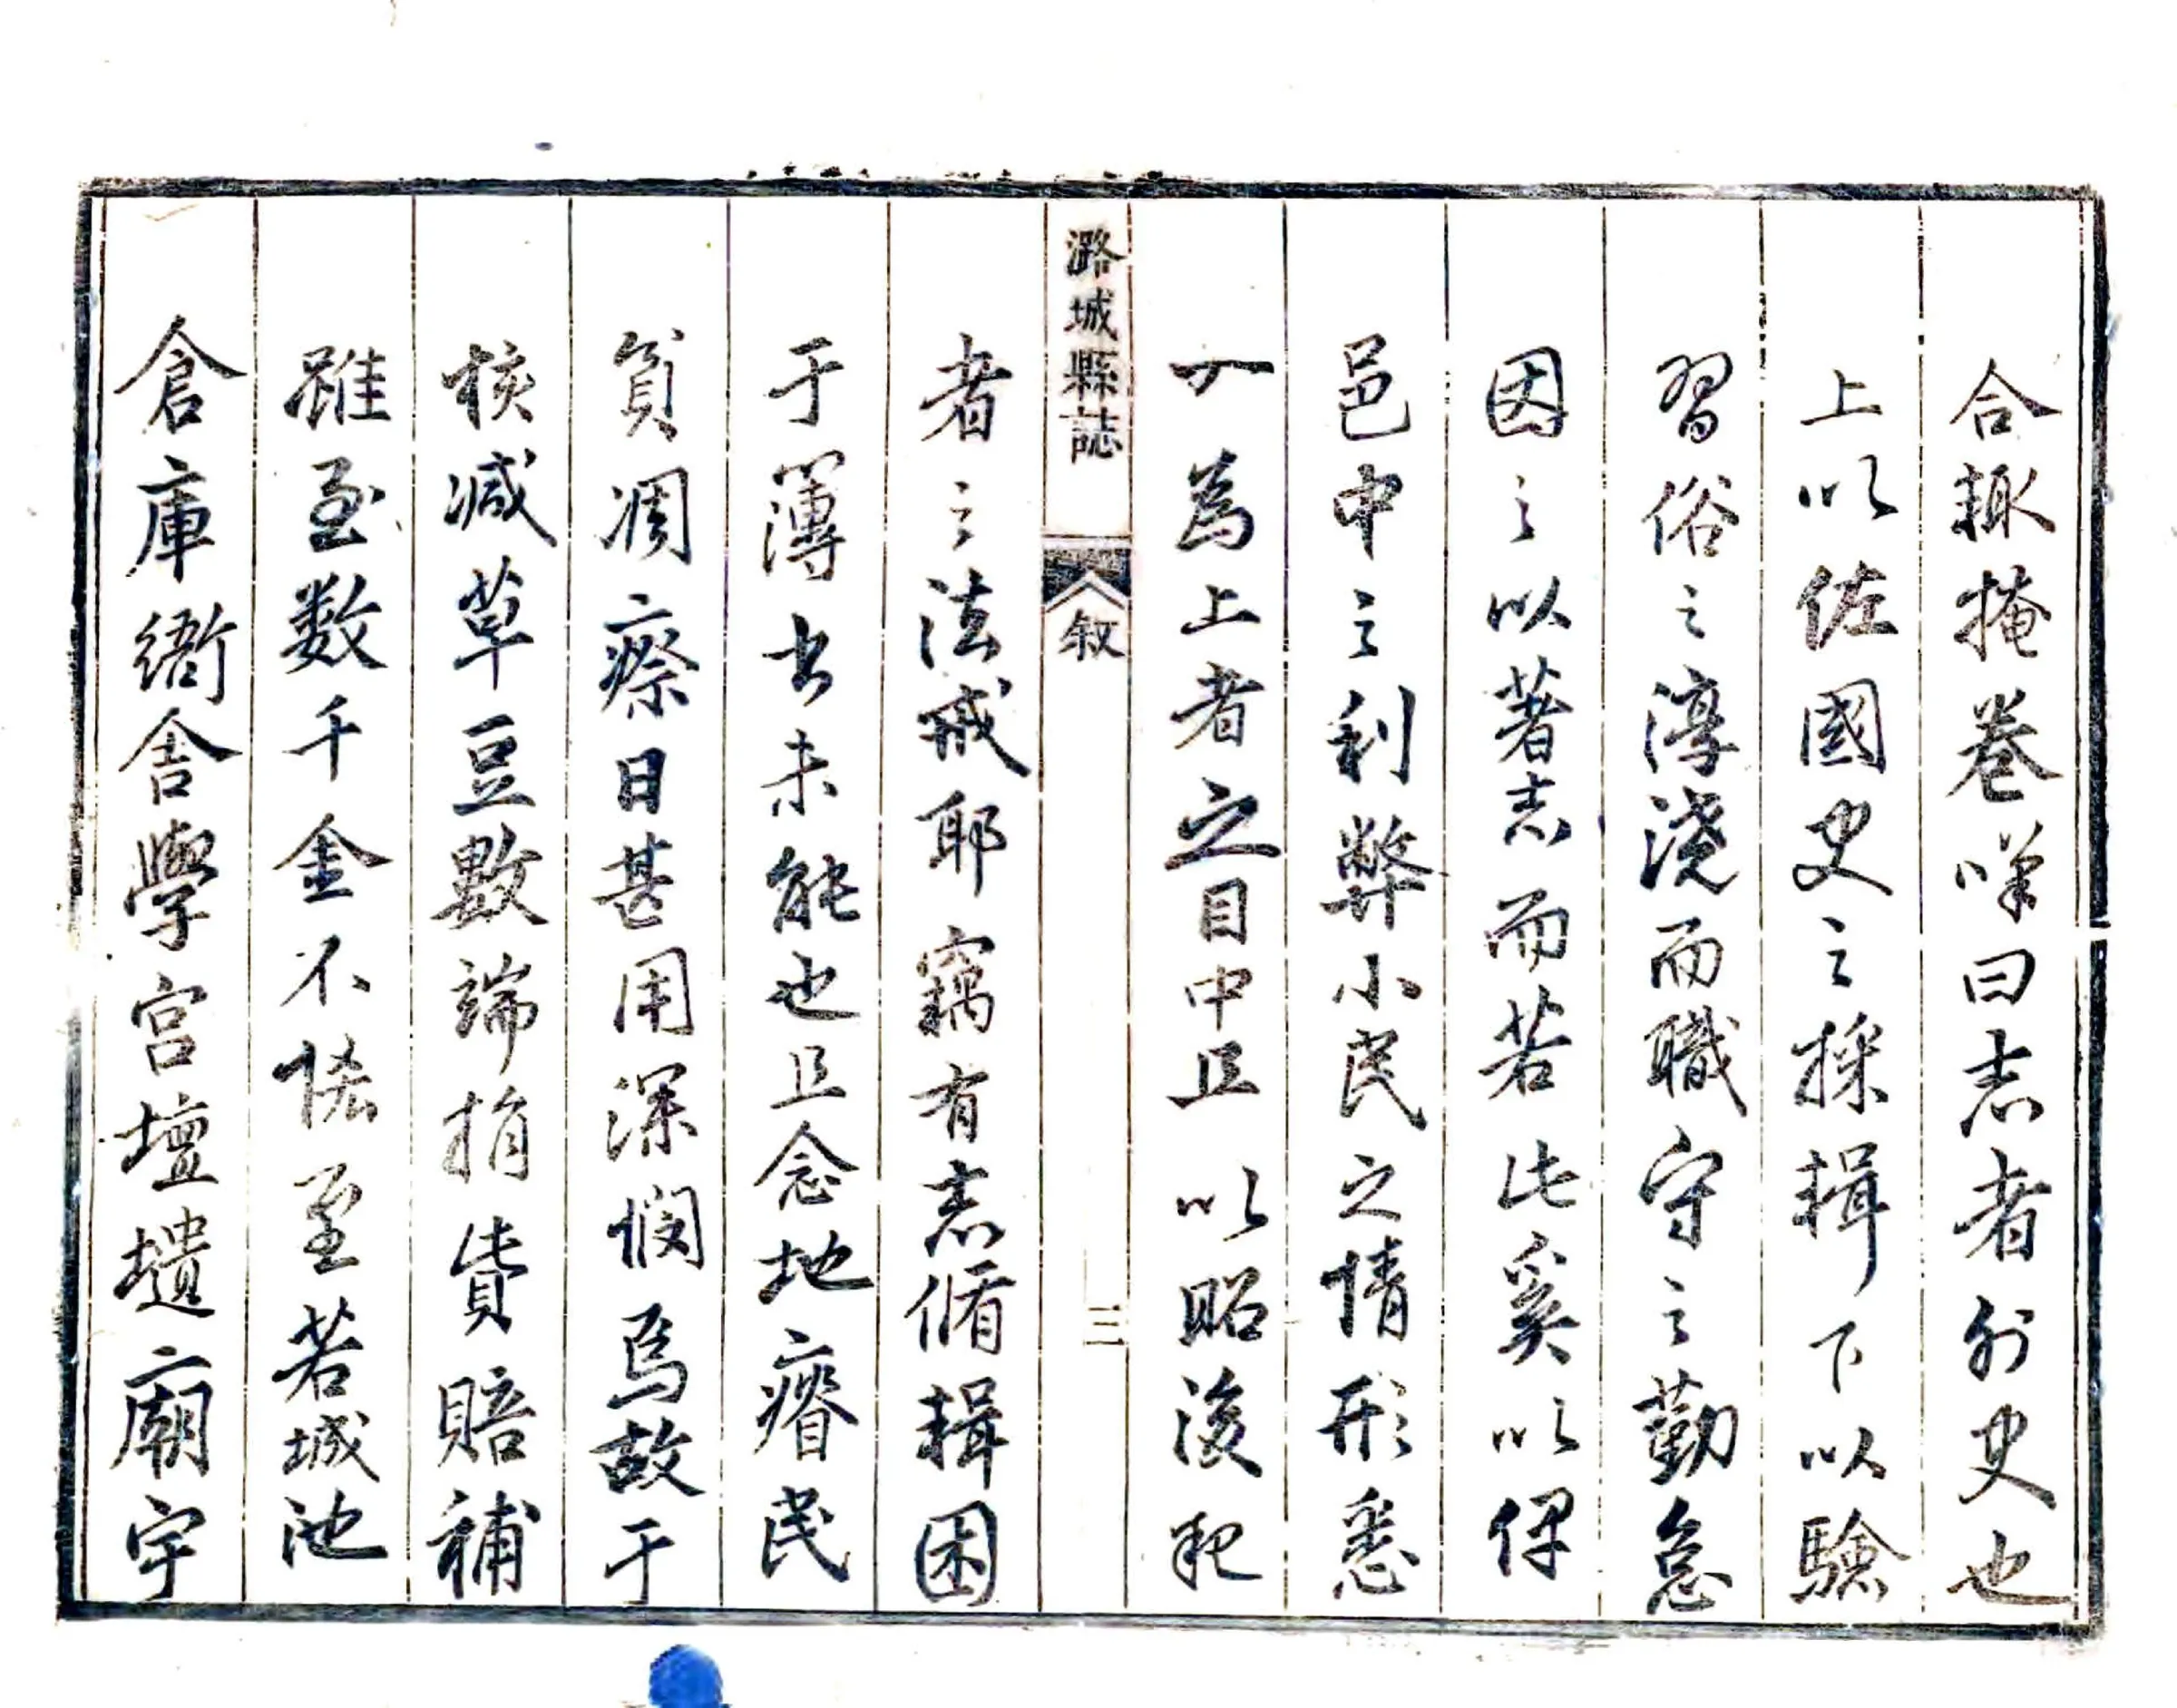 合輙掩卷嘆曰志者外史也
上以佐國史之採輯下以驗
習俗之淳澆而職守之勤怠
因之以著志而若此奚以俾
邑中之利弊小民之情形悉
入為上者之目中且以昭後祀
潞城縣誌
叙
三
者之法戒耶竊有志脩輯困
于簿書未能也且念地瘠民
貧凋瘵日甚用深憫焉故于
核減草豆數端捐貲賠補
雖至数千金不恡至若城池
倉庫衙舍學宮壇壝廟宇